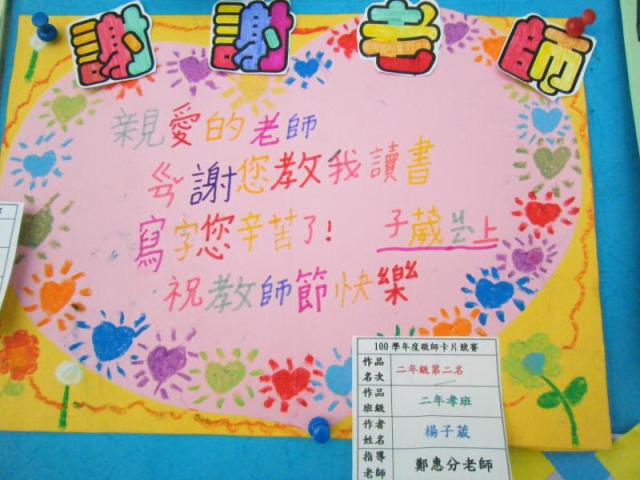 謝謝老師
親愛的老師
謝您教我讀書
寫字您辛苦了!
子葳 上
祝教師節快樂
100學年度敬師卡片競賽
作品
名次 二年級第二名
作品
班級 二年孝班
作者
姓名 楊子葳
指導
老師 鄭惠分老師